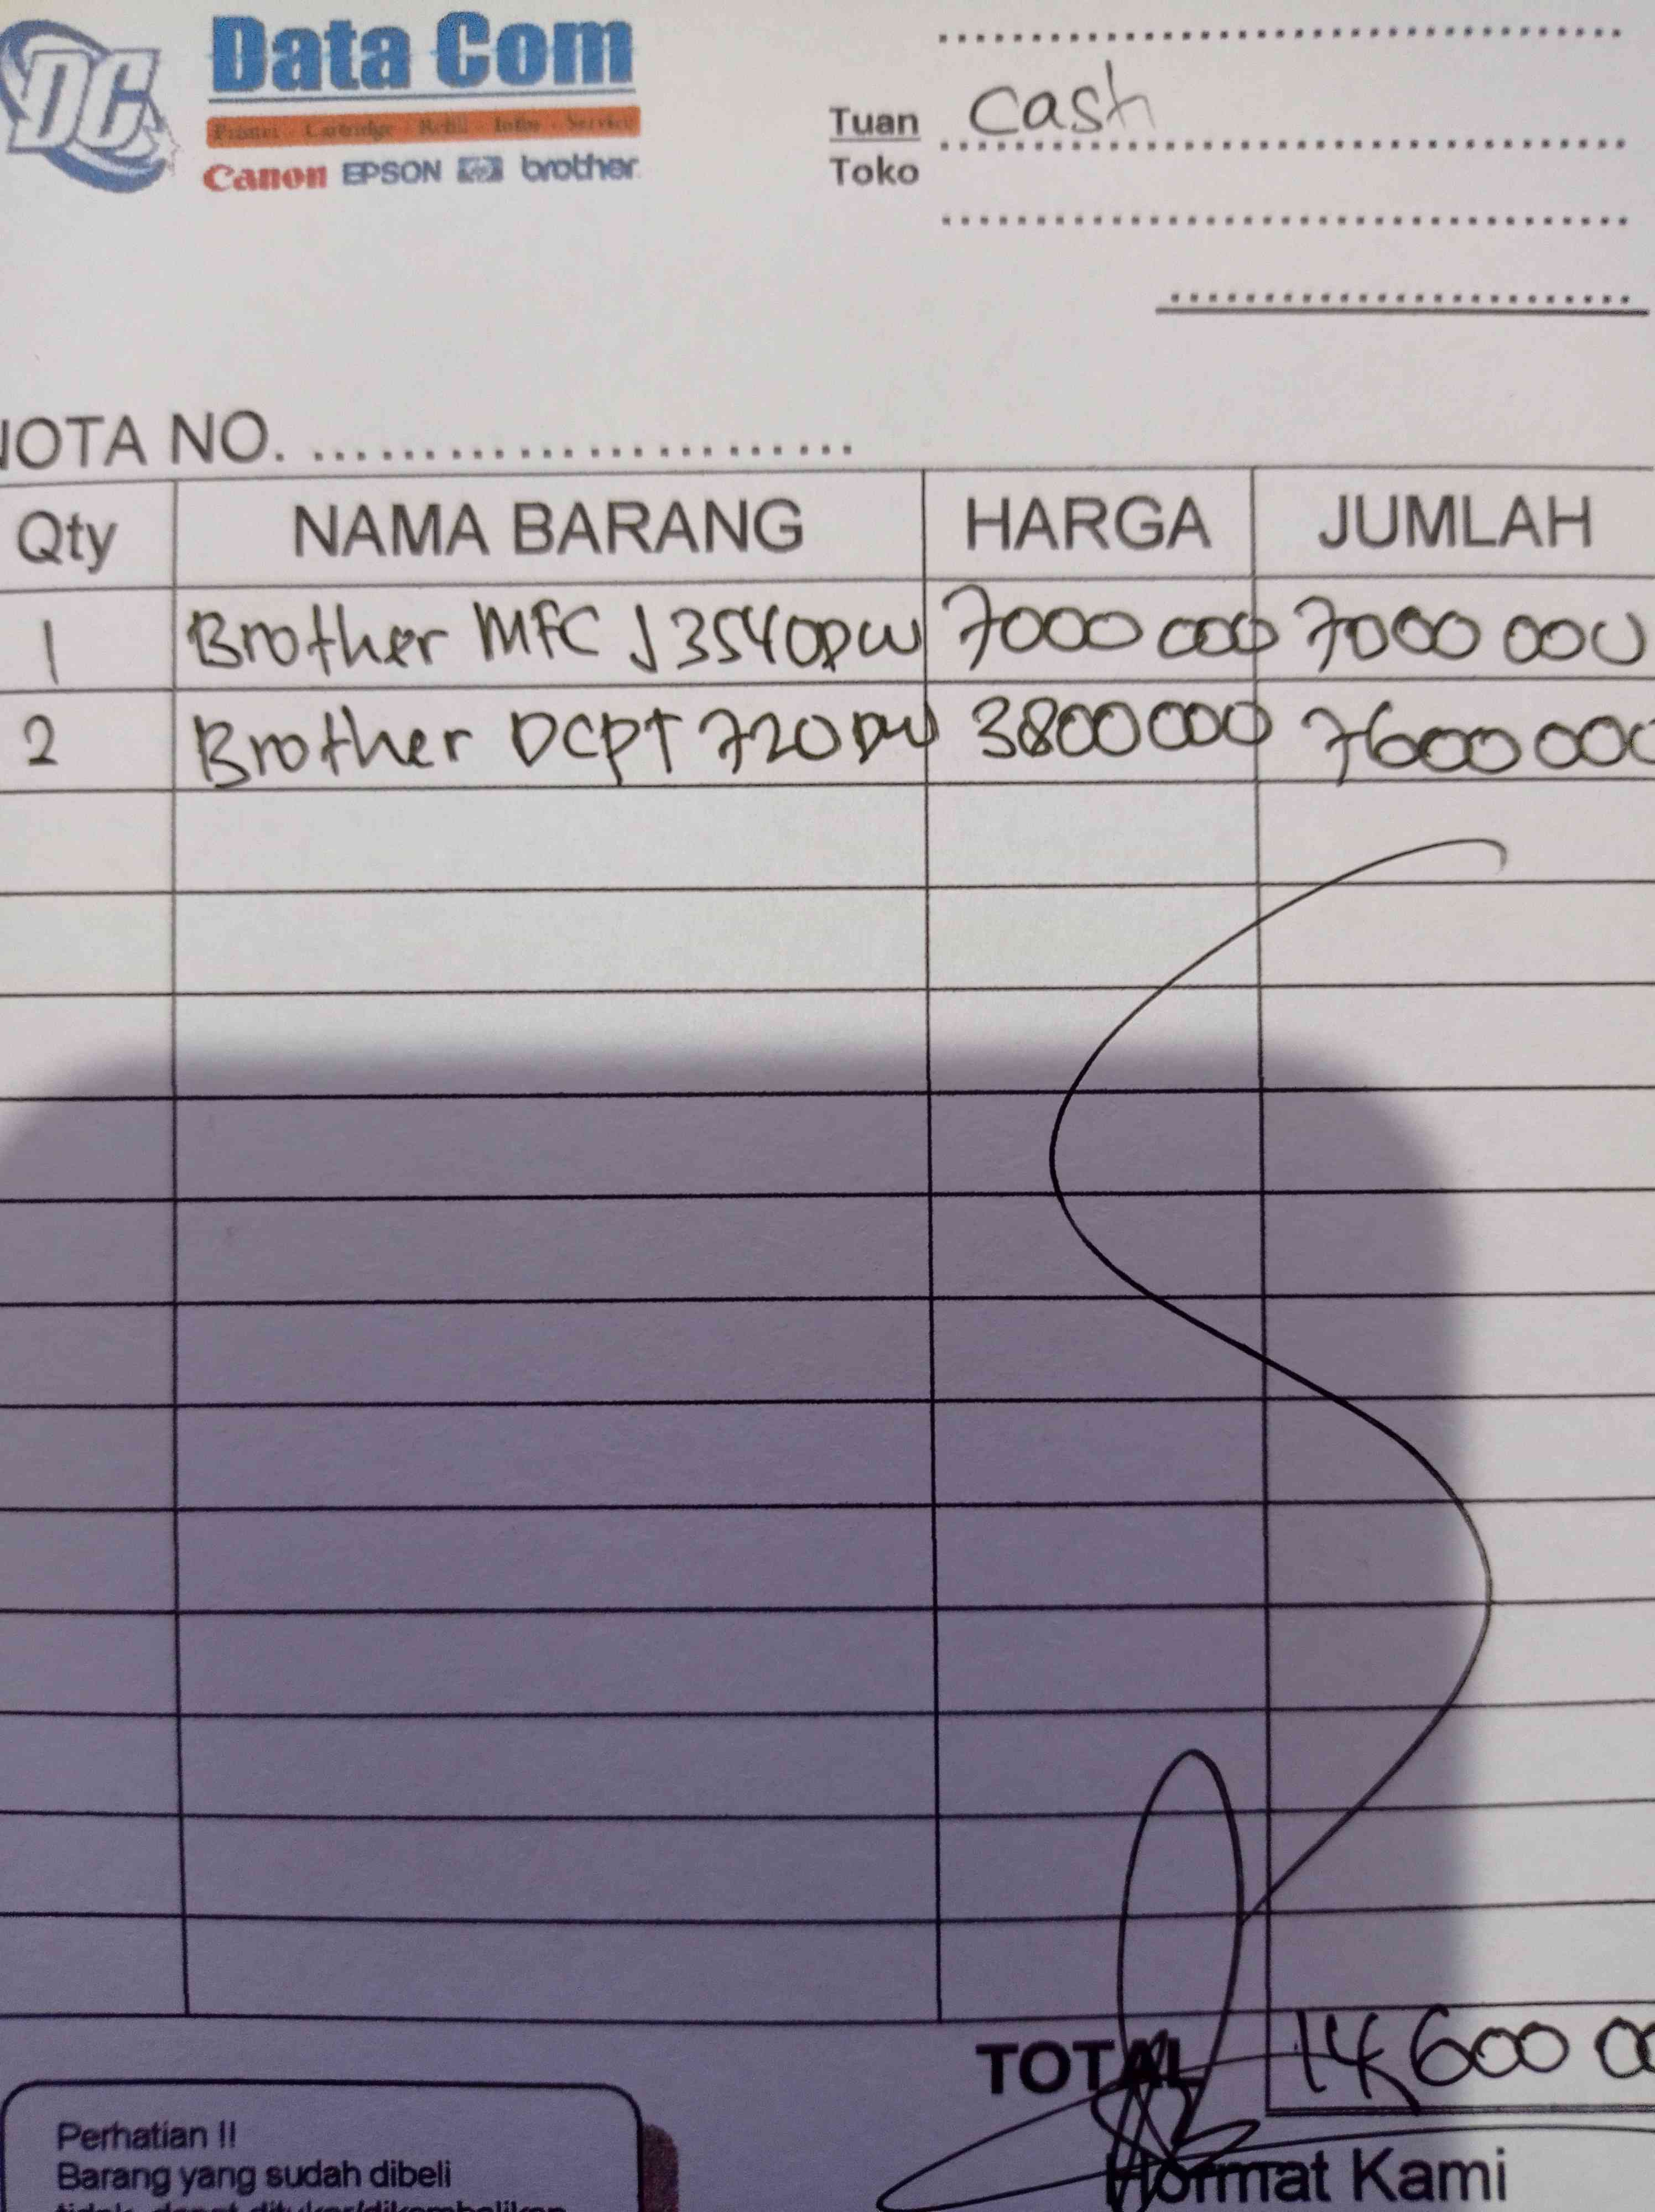 DC Data Com
Printer - Cartridge - Refill - Infus - Service
Canon EPSON hp brother
Tuan cash
Toko
NOTA NO.
Qty NAMA BARANG HARGA JUMLAH
1 Brother MFC J3540DW 7000 000 7000 000
2 Brother DCPT 720DW 3800 000 7600 000
TOTAL 14600 00
Perhatian !!
Hormat Kami
Barang yang sudah dibeli
tidak dapat ditukar/dikembalikan